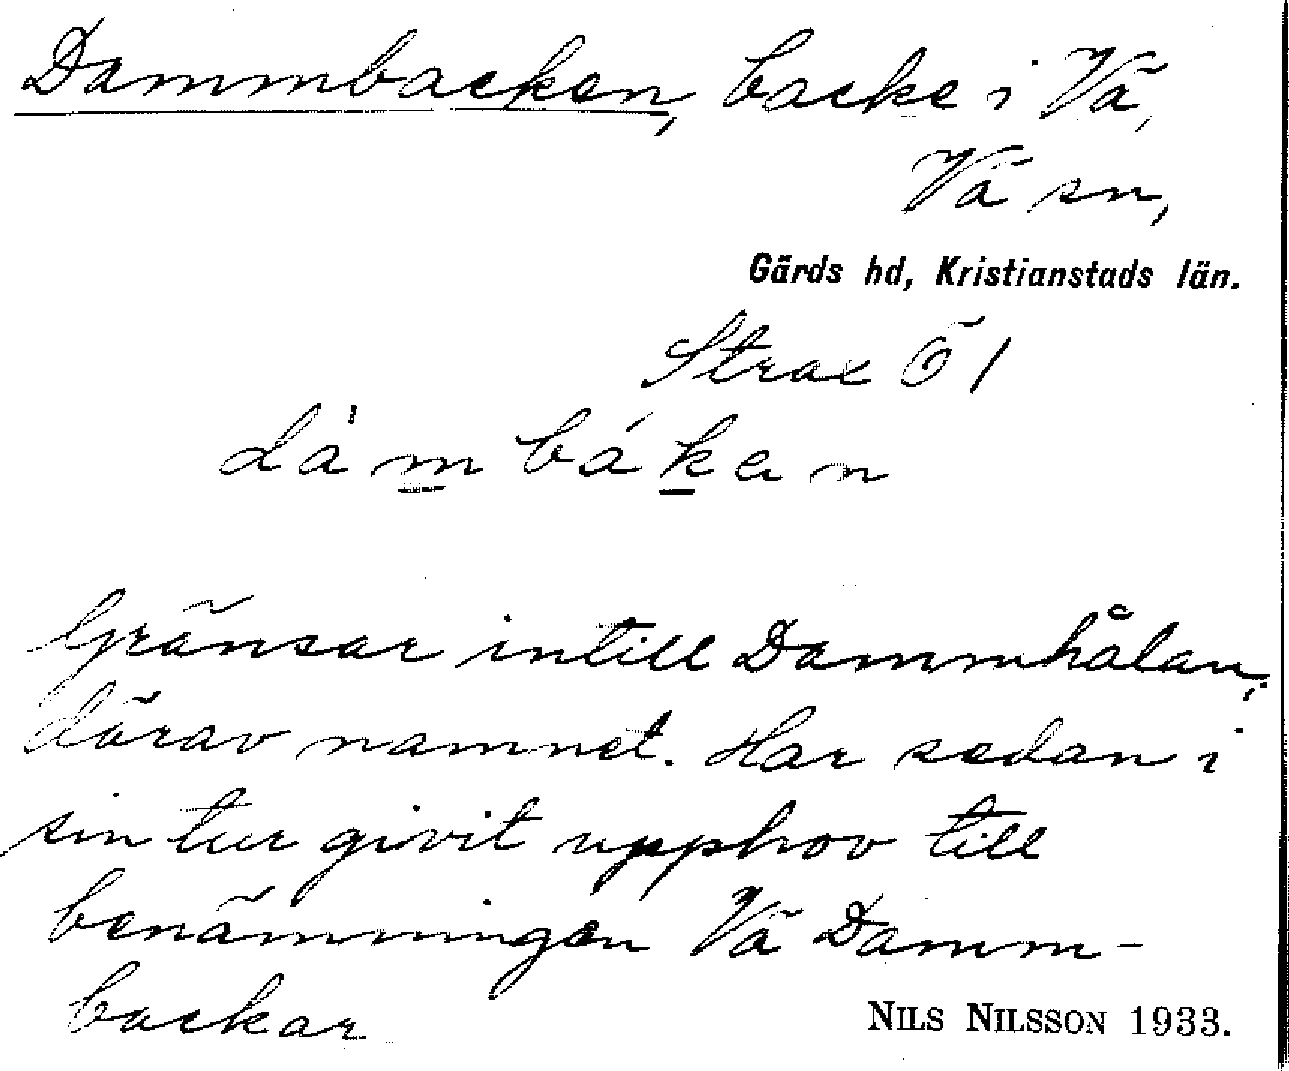 Dammbacken, backe i Vä,
Vä sn,
Gärds hd, Kristianstads län.
Strax Ö 1
dàm bákan
Gränsar intill Dammhålan,
därav namnet. Har sedan i
sin tur givit upphov till
benämningen Vä Damm-
backar
NILS NILSSON 1933.